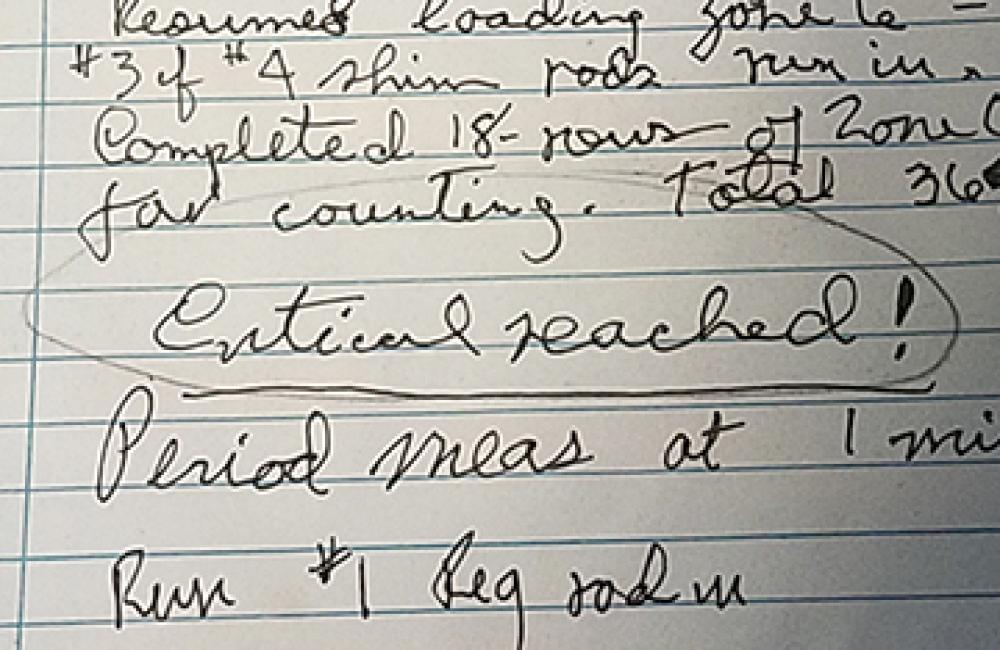 Resumed loading zone
#3 of #4 shim rods run in.
Completed 18- rows of Zone
for counting. Total 36
Critical reached!
Period meas at 1 mi
Run #1 Reg rod in